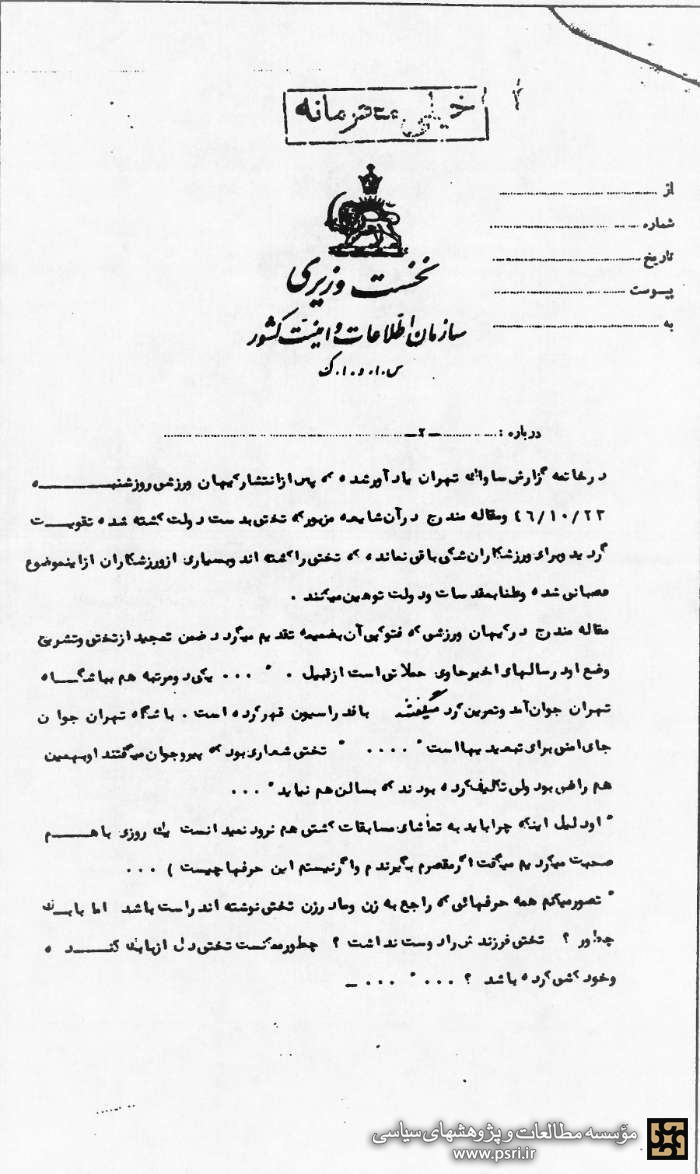 خیلی محرمانه
از
شماره
تاریخ
پیوست
به
نخست وزیری
سازمان اطلاعات و امنیت کشور
س.ا.و.ا.ک
درباره : ـ ۲ ـ
در خاتمه گزارش ساواک تهران یادآور شده که پس از انتشار کیهان ورزشی روز شنبه
۴۶/۱۰/۲۳ ومقاله مندرج در آن شایعه مزبور که تختی بدست دولت کشته شده تقویت
گردید وبرای ورزشکاران شکی باقی نمانده که تختی را کشته اند وبسیاری از ورزشکاران از اینموضوع
عصبانی شده وعلنا بمقدسات ودولت توهین میکنند .
مقاله مندرج در کیهان ورزشی که فتوکپی آن بضمیمه تقدیم میگردد ضمن تمجید از تختی وتشریح
وضع او در سالهای اخیر حاوی جملاتی است از قبیل . " ... یکی دو مرتبه هم بباشگاه
تهران جوان آمد وتمرین کرد میگفتند با فدراسیون قهر کرده است . باشگاه تهران جوان
جای امنی برای تبعید بهااست " .... " تختی شعاری بود که پیر وجوان میگفتند او بهمین
هم راضی بود ولی تکلیف کرده بودند که بسالن هم نیاید " ...
" او دلیل اینکه چرا باید به تماشای مسابقات کشتی هم نرود نمیدانست یک روزی باهم
صحبت میکردیم میگفت اگر مقصرم بگیرندم واگر نیستم این حرفها چیست ) ...
" تصور میکنم همه حرفهائی که راجع به زن ومادرزن تختی نوشته اند راست باشد اما بابک
چطور ؟ تختی فرزندش را دوست نداشت ؟ چطور ممکنست تختی دل از بابک کنده
وخودکشی کرده باشد ؟ ... " ... ـ
مؤسسه مطالعات و پژوهشهای سیاسی
www.psri.ir